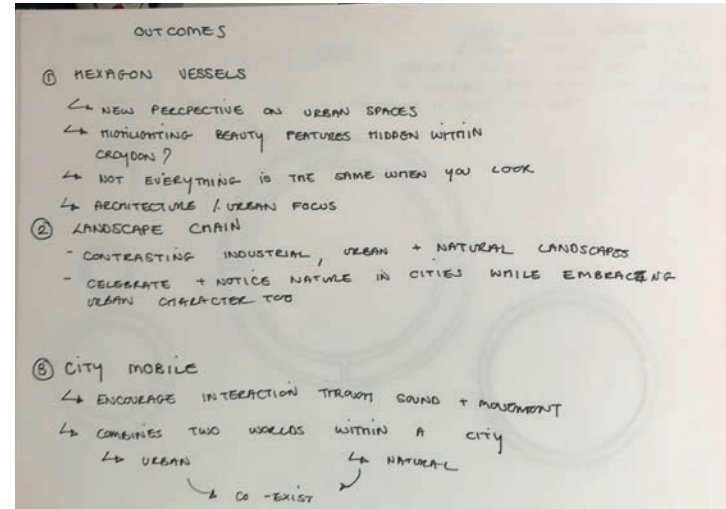 OUTCOMES
① HEXAGON VESSELS
↳ NEW PERCPECTIVE ON URBAN SPACES
↳ HIGHLIGHTING BEAUTY FEATURES HIDDEN WITHIN
CROYDON?
↳ NOT EVERYTHING IS THE SAME WHEN YOU LOOK
↳ ARCHITECTURE / URBAN FOCUS
② LANDSCAPE CHAIN
- CONTRASTING INDUSTRIAL, URBAN + NATURAL LANDSCAPES
- CELEBRATE + NOTICE NATURE IN CITIES WHILE EMBRACING
URBAN CHARACTER TOO
③ CITY MOBILE
↳ ENCOURAGE INTERACTION THROUGH SOUND + MOVEMENT
↳ COMBINES TWO WORLDS WITHIN A CITY
↳ URBAN ↳ NATURAL
CO-EXIST